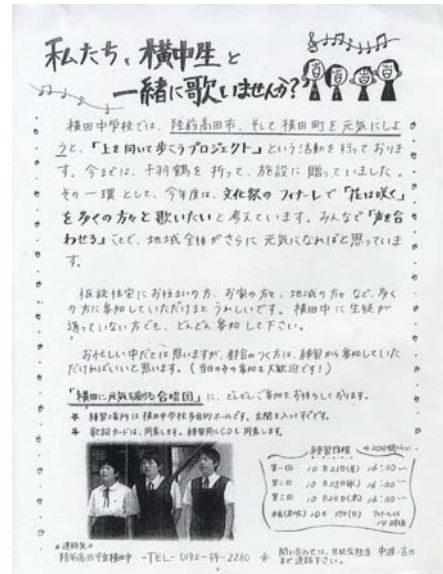 私たち、横中生と
一緒に歌いませんか?
横田中学校では、陸前高田市、そして横田町を元気にしよ
うと、「上を向いて歩こうプロジェクト」という活動を行っておりま
す。今までは、千羽鶴を折って、施設に贈っていました。
その一環として、今年度は、文化祭のフィナーレで「花は咲く」
を多くの方々と歌いたいと考えています。みんなで「声を合
わせる」ことで、地域全体がさらに元気になればと思っていま
す。
仮設住宅にお住まいの方、お家の方々、地域の方々など、多く
の方に参加していただけるとうれしいです。横田中に生徒が
通っていない方でも、どんどん参加して下さい。
お忙しい中だとは思いますが、都合のつく方は、練習から参加していた
だければいいと思います。(当日のみの参加も大歓迎です!)
「横田に元気を届ける合唱団」に、どしどしご参加をお待ちしております。
* 練習場所は横田中学校多目的ホールです。玄関を入ってすぐです。
* 歌詞カードは、用意します。練習用にCDも用意します。
練習日程
第一回 10月21日(月) 16:30〜
第二回 10月23日(水) 16:30〜
第三回 10月24日(木) 16:30〜
10月27日(日)
連絡先
陸前高田市立横田中 -TEL- 0192-59-2260